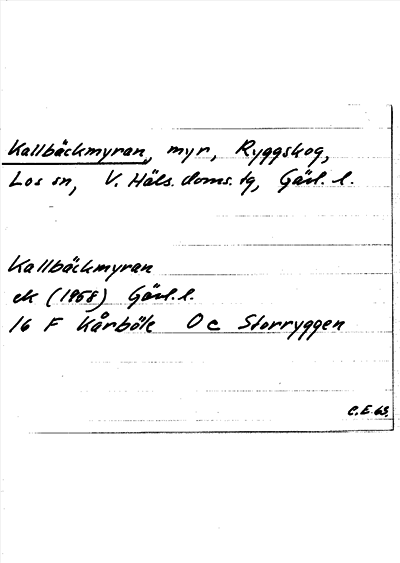 Kallbäckmyran, myr, Ryggskog,
Los sn, V. Häls. doms. tg, Gävl. l.
Kallbäckmyran
ek (1958) Gävl. l.
16 F Kårböle 0 c Storryggen
C.E. 63.